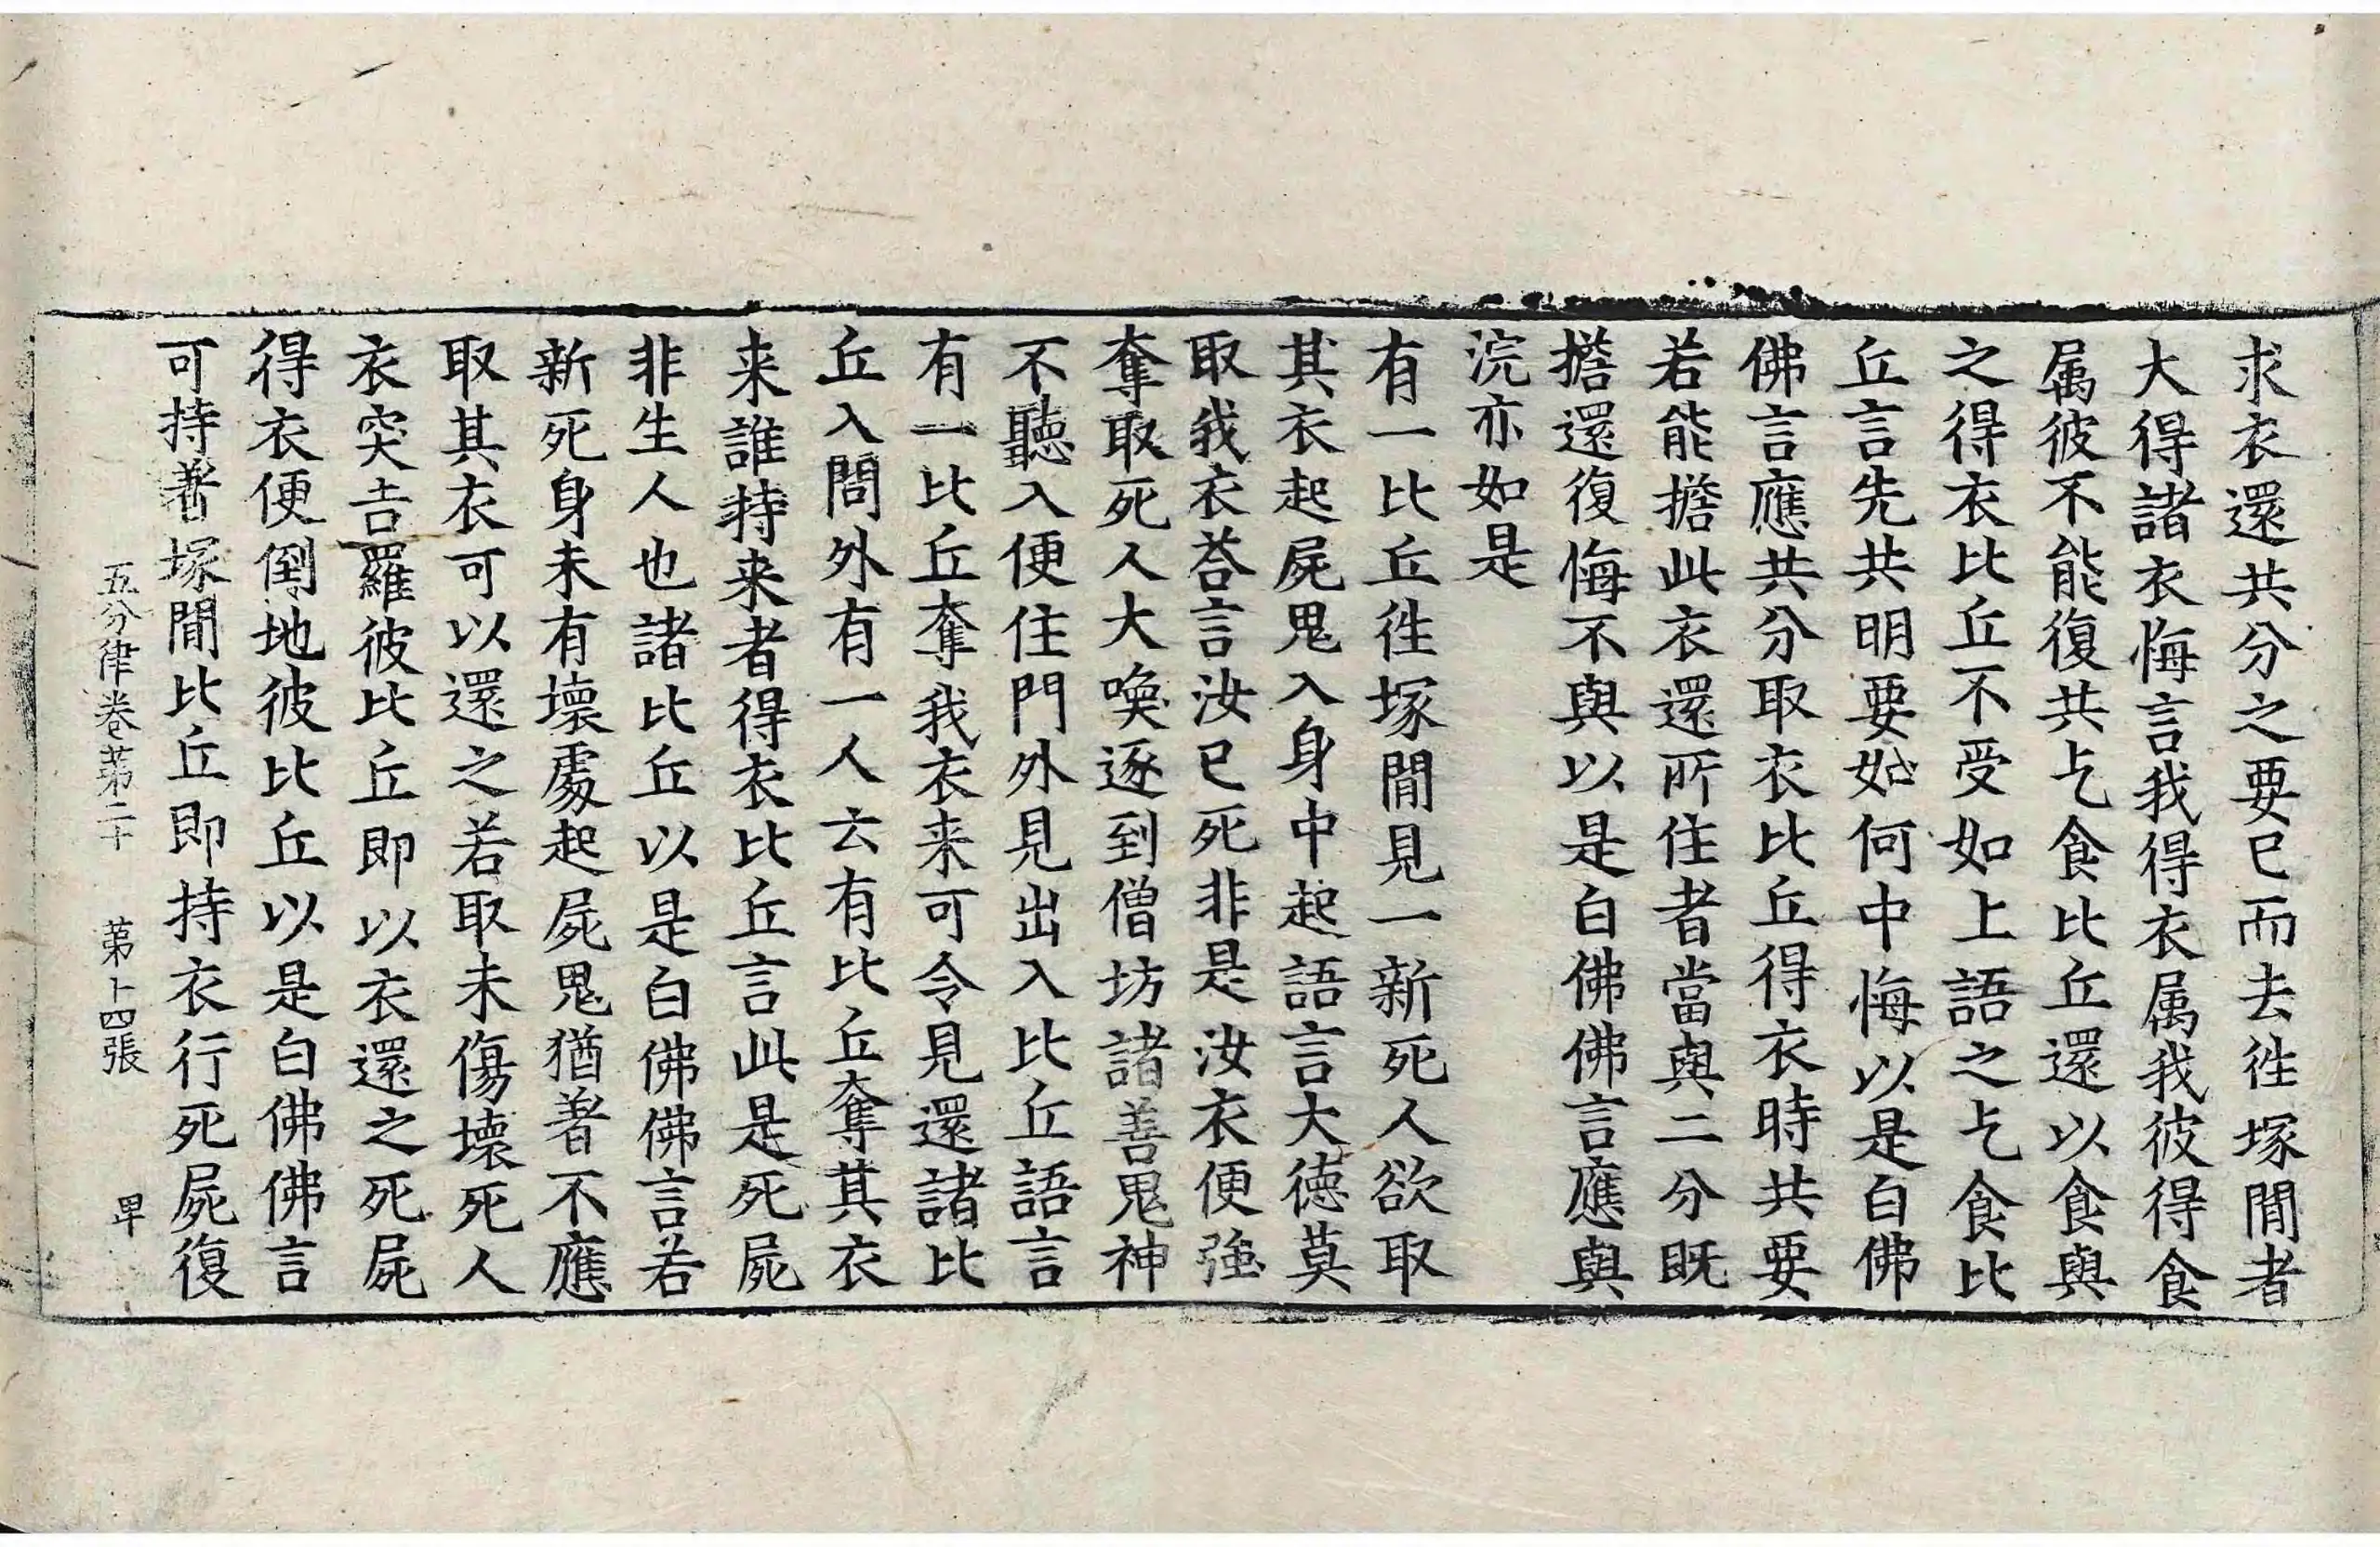 求衣還共分之要已而去徃塚間者
大得諸衣悔言我得衣属我彼得食
属彼不能復共乞食比丘還以食與
之得衣比丘不受如上語之乞食比
丘言先共明要如何中悔以是白佛
佛言應共分取衣比丘得衣時共要
若能擔此衣還所住者當與二分既
擔還復悔不與以是白佛佛言應與
浣亦如是
有一比丘徃塚間見一新死人欲取
其衣起屍鬼入身中起語言大德莫
取我衣荅言汝已死非是汝衣便強
奪取死人大喚逐到僧坊諸善鬼神
不聽入便住門外見出入比丘語言
有一比丘奪我衣来可令見還諸比
丘入問外有一人云有比丘奪其衣
来誰持来者得衣比丘言此是死屍
非生人也諸比丘以是白佛佛言若
新死身未有壞處起屍鬼猶著不應
取其衣可以還之若取未傷壞死人
衣突吉羅彼比丘即以衣還之死屍
得衣便倒地彼比丘以是白佛佛言
可持著塚間比丘即持衣行死屍復
五分律卷苐二十 苐十四張 𤰞